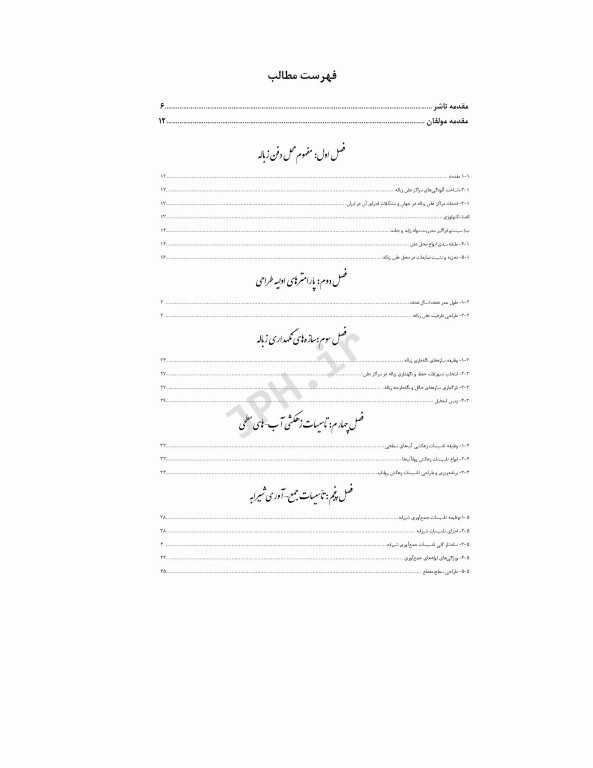 فهرست مطالب
مقدمه ناشر ........ ۶
مقدمه مولفان ........ ۱۲
فصل اول: مفهوم محل دفن زباله
۱-۱ مقدمه ........ ۱۲
۲-۱ شناخت آلودگی‌های مراکز دفن زباله ........ ۱۲
۳-۱- اهداف مراکز دفن زباله در جهان و مشکلات اجرای آن در ایران ........ ۱۳
الف) تکنولوژی ........ ۱۳
ب) سیستم فراگیر مدیریت مواد زاید و جامد ........ ۱۴
۴-۱- طبقه بندی انواع محل دفن ........ ۱۴
۵-۱- تجزیه و تثبیت ضایعات در محل دفن زباله ........ ۱۶
فصل دوم: پارامترهای اولیه طراحی
۱-۲- طول عمر هدف/سال هدف ........ ۲
۲-۲- طراحی ظرفیت دفن زباله ........ ۲
فصل سوم: سازه‌های نگهداری زباله
۱-۳- وظیفه سازه‌های نگهداری زباله ........ ۲۴
۲-۳- انتخاب تسهیلات حفظ و نگهداری زباله در مراکز دفن ........ ۲۷
۳-۳- بارگذاری سازه‌های حائل و نگه‌دارنده زباله ........ ۲۷
۴-۳- زمین ........ ۲۹
فصل چهارم: تاسیسات زهکشی آب-های سطحی
۱-۴- وظیفه تاسیسات زهکشی آبهای سطحی ........ ۳۲
۲-۴- انواع تاسیسات زهکش رواناب‌ها ........ ۳۲
۳-۴- برنامه‌ریزی و طراحی تاسیسات زهکش رواناب ........ ۳۴
فصل پنجم: تأسیسات جمع-آوری شیرابه
۱-۵-وظیفه تاسیسات جمع‌آوری شیرابه ........ ۳۸
۲-۵- اجزای تاسیسات شیرابه ........ ۳۸
۳-۵- ساختار کلی تاسیسات جمع‌آوری شیرابه ........ ۴
۴-۵- ویژگی‌های لوله‌های جمع‌آوری ........ ۴۴
۵-۵- طراحی سطح مقطع ........ ۴۵
JPH.ir